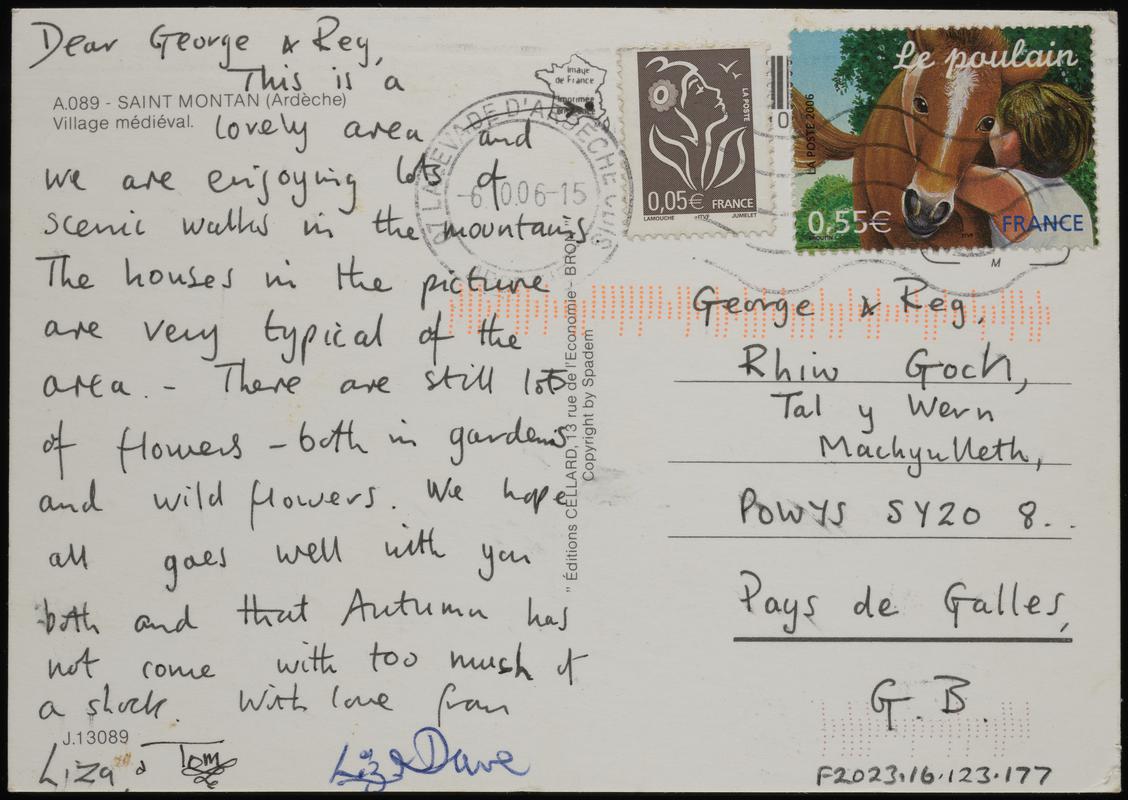 Dear George & Reg,
This is a
A.089 - SAINT MONTAN (Ardèche)
Village médiéval.
lovely area and
we are enjoying lots of
scenic walks in the mountains.
The houses in the picture
are very typical of the
area - There are still lots
of flowers - both in gardens
and wild flowers. We hope
all goes well with you
both and that Autumn has
not come with too much of
a shock. With love from
J.13089
Liza & Tom
Liz & Dave
" Éditions CELLARD, 13 rue de l'Economie - BRON
Copyright by Spadem
Image
de France
Imprimée
LALEVADE D'ARDECHE
-6.10.06-15
LA POSTE
0,05€ FRANCE
LAMOUCHE ITVF JUMELET
Le poulain
LA POSTE 2006
0,55€
FRANCE
M
George & Reg,
Rhiw Goch,
Tal y Wern
Machynlleth,
POWYS SY20 8..
Pays de Galles,
G.B.
F2023.16.123.177